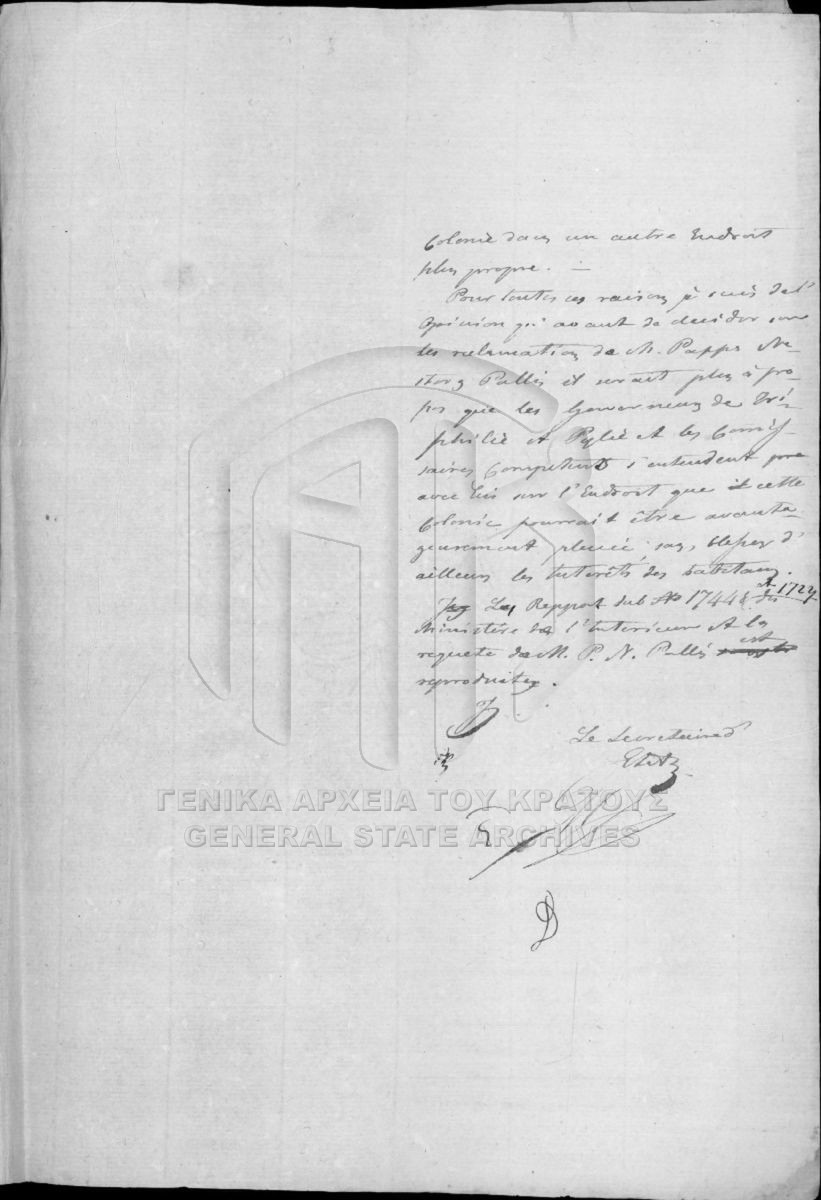 Colonie dans un autre Endroit
plus propre. —
Pour toutes ces raisons je suis de l'
Opinion qu' avant de decider sur
les reclamation de M. Pappa Ne-
stors Pallis il serait plus à pro-
pos que les Gouverneurs de Tri-
philie et Pylie et les Comis-
saires Competents s'entendent
avec lui sur l'Endroit que cette
Colonie pourrait être avanta-
geusement placée, sans blesser d'
ailleurs les Interêts des habitans.
Le Rapport sub No 17448 et 1727 du
Ministère de l'Interieur et la
requete de M. P. N. Pallis est
reproduite.
Le Secretaire d'
Etat
ΓΕΝΙΚΑ ΑΡΧΕΙΑ ΤΟΥ ΚΡΑΤΟΥΣ
GENERAL STATE ARCHIVES